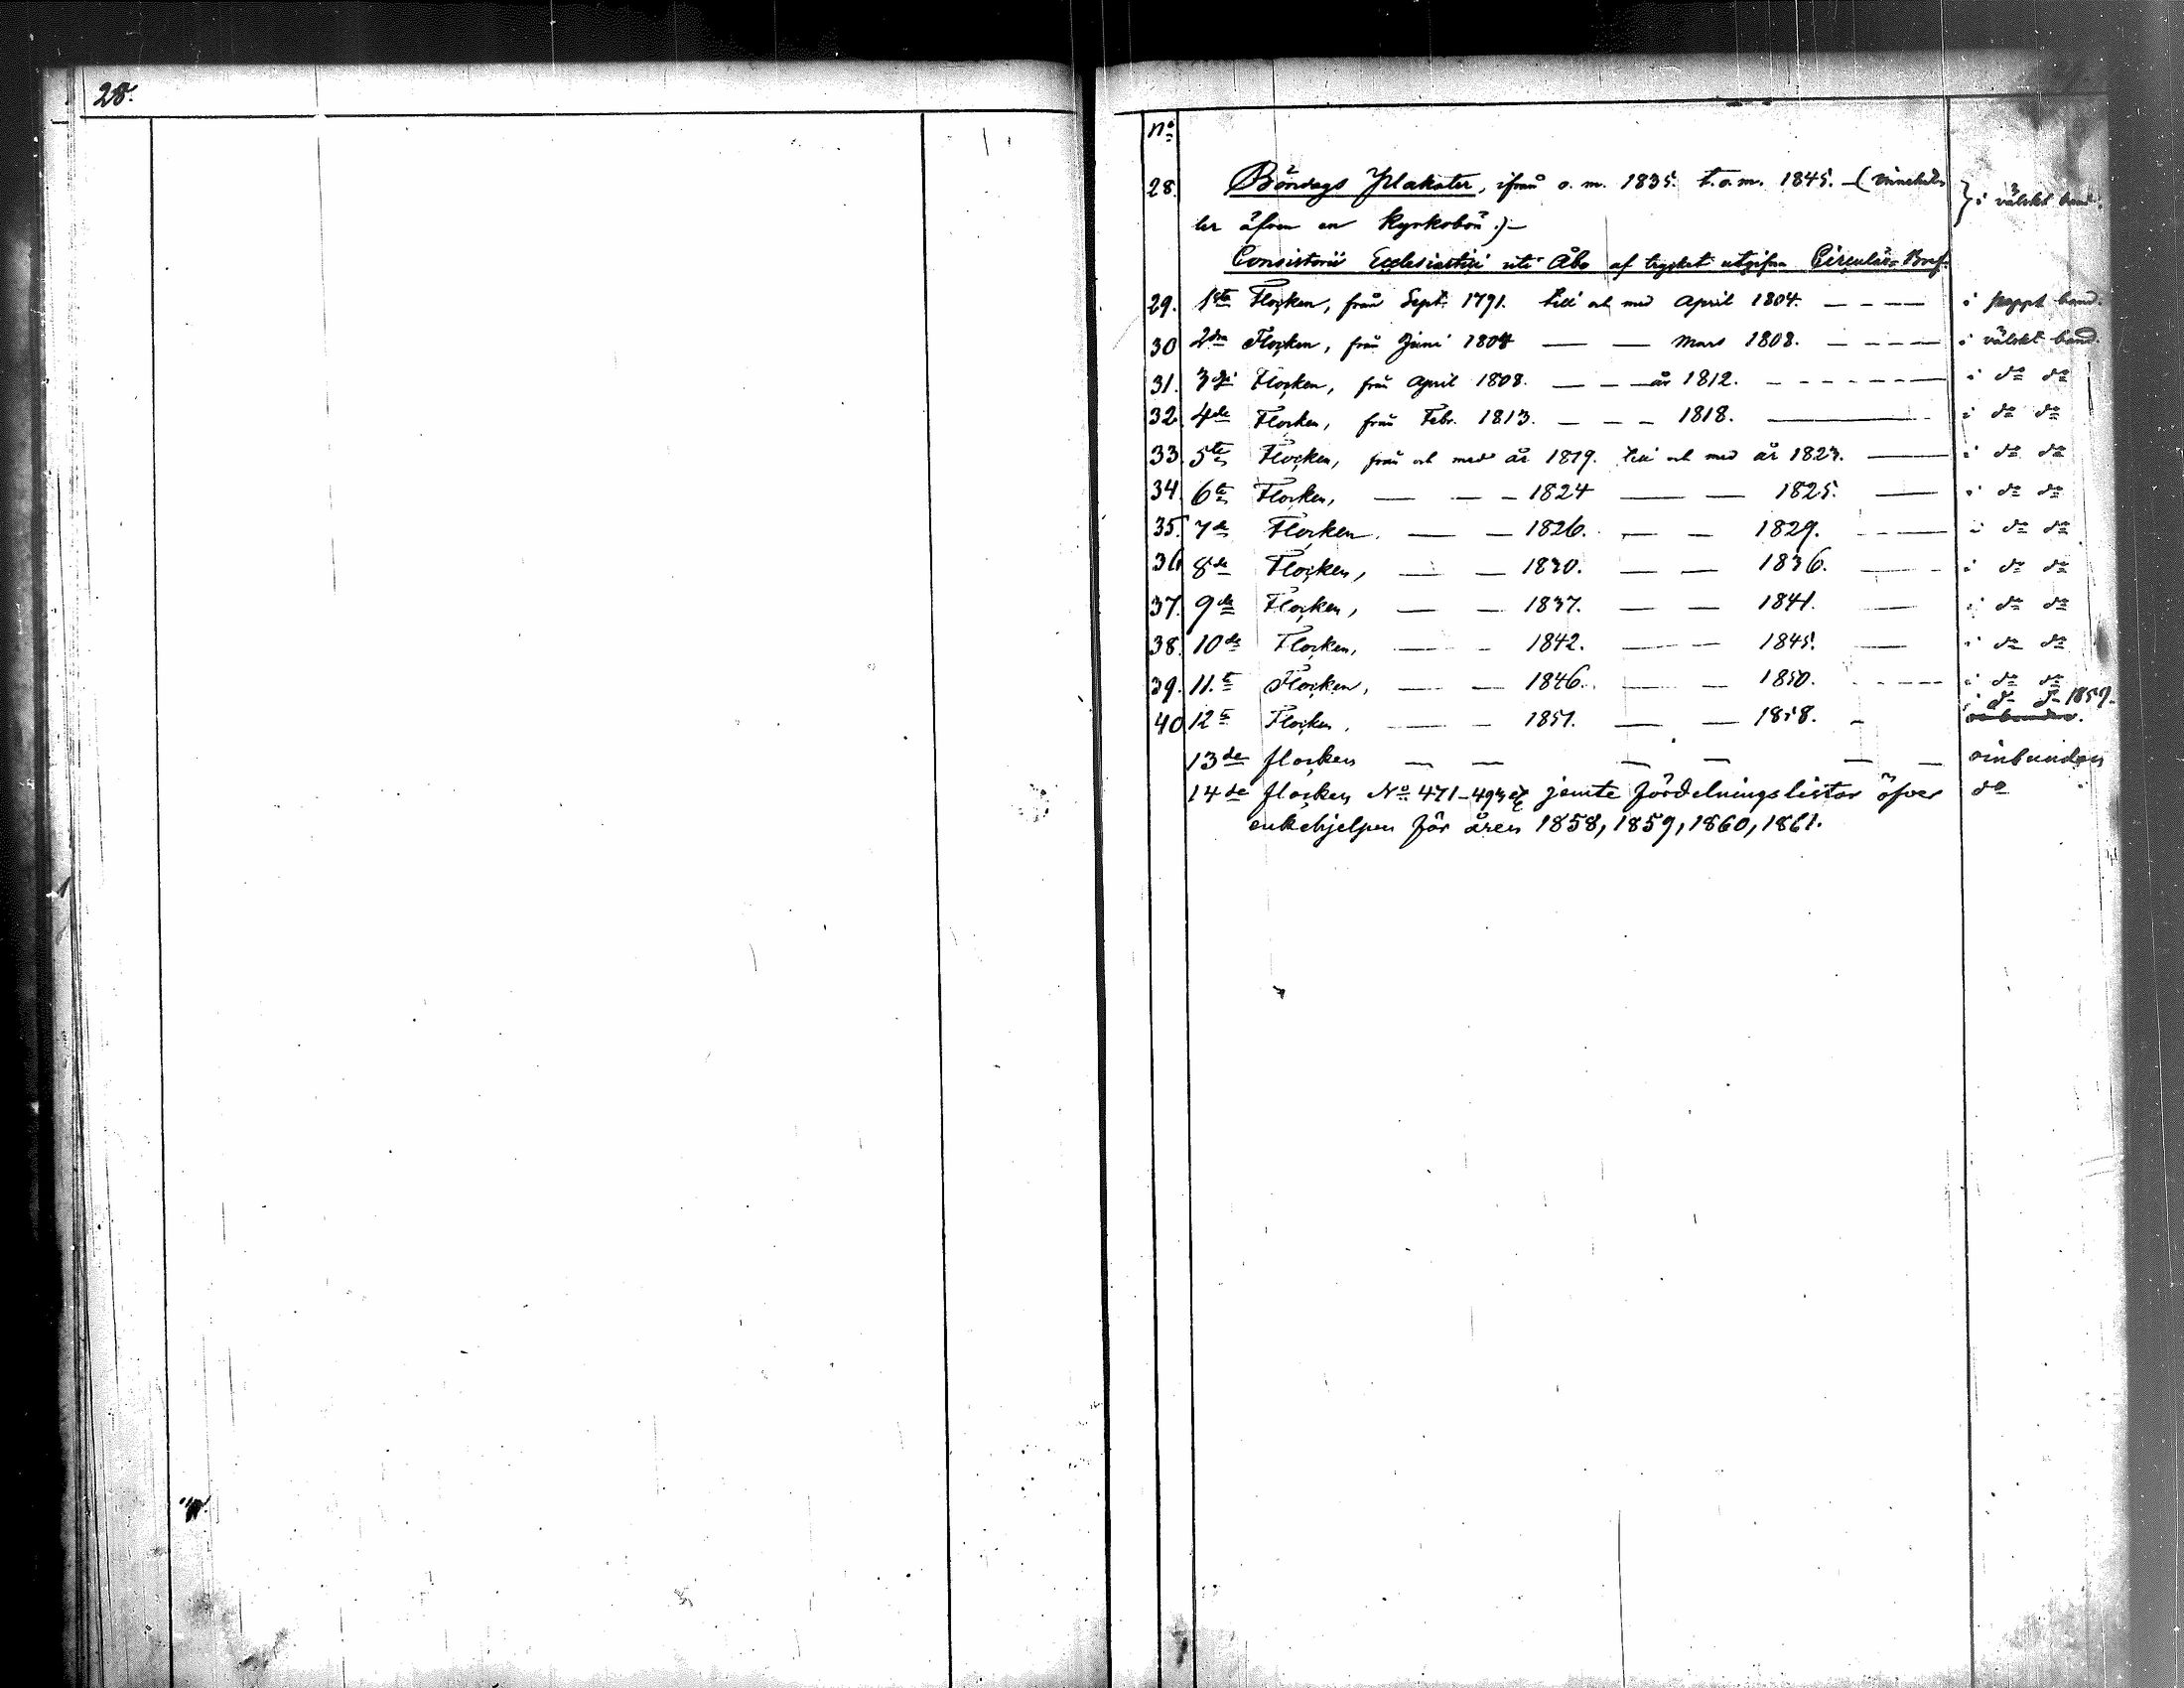 28.
No
28. Böndags Plakater, ifrån o. m. 1835. t. o. m. 1845. – (innehål- } i välskt band.
ler äfven en Kyrkobön.) –
Consistorii Ecclesiastici uti Åbo af trycket utgifna Circulär-Bref.
29. 1sta Flocken, från Sept. 1791. till och med April 1804. – – – – i pappt band.
30 2dra Flocken, från Juni 1804 — — Mars 1808. – – – – i välskt band.
31. 3dje Flocken, från April 1808. — – – år 1812. – – – – – – i do do
32 4de Flocken, från Febr. 1813. – – – 1818. ——— i do do
33. 5te Flocken, från och med år 1819. till och med år 1823. — i do do
34. 6te Flocken, — – – 1824 — — 1825. — i do do
35. 7de Flocken. — – 1826. – – 1829. – – — i do do
36 8de Flocken, — — 1830. — — 1836. — – i do do
37. 9de Flocken, — – 1837. — — 1841. — i do do
38. 10de Flocken, — – 1842. — – 1845. — i do do
39. 11te Flocken, — — 1846. — — 1850. – – – — i do do
i do do 1859.
40 12te Flocken. — – 1851. — — 1858. – oinbunden.
13de flocken — — — — — — oinbunden
14de flocken No 471–493 jemte fördelningslistor öfver do
enkehjelpen för åren 1858, 1859, 1860, 1861.